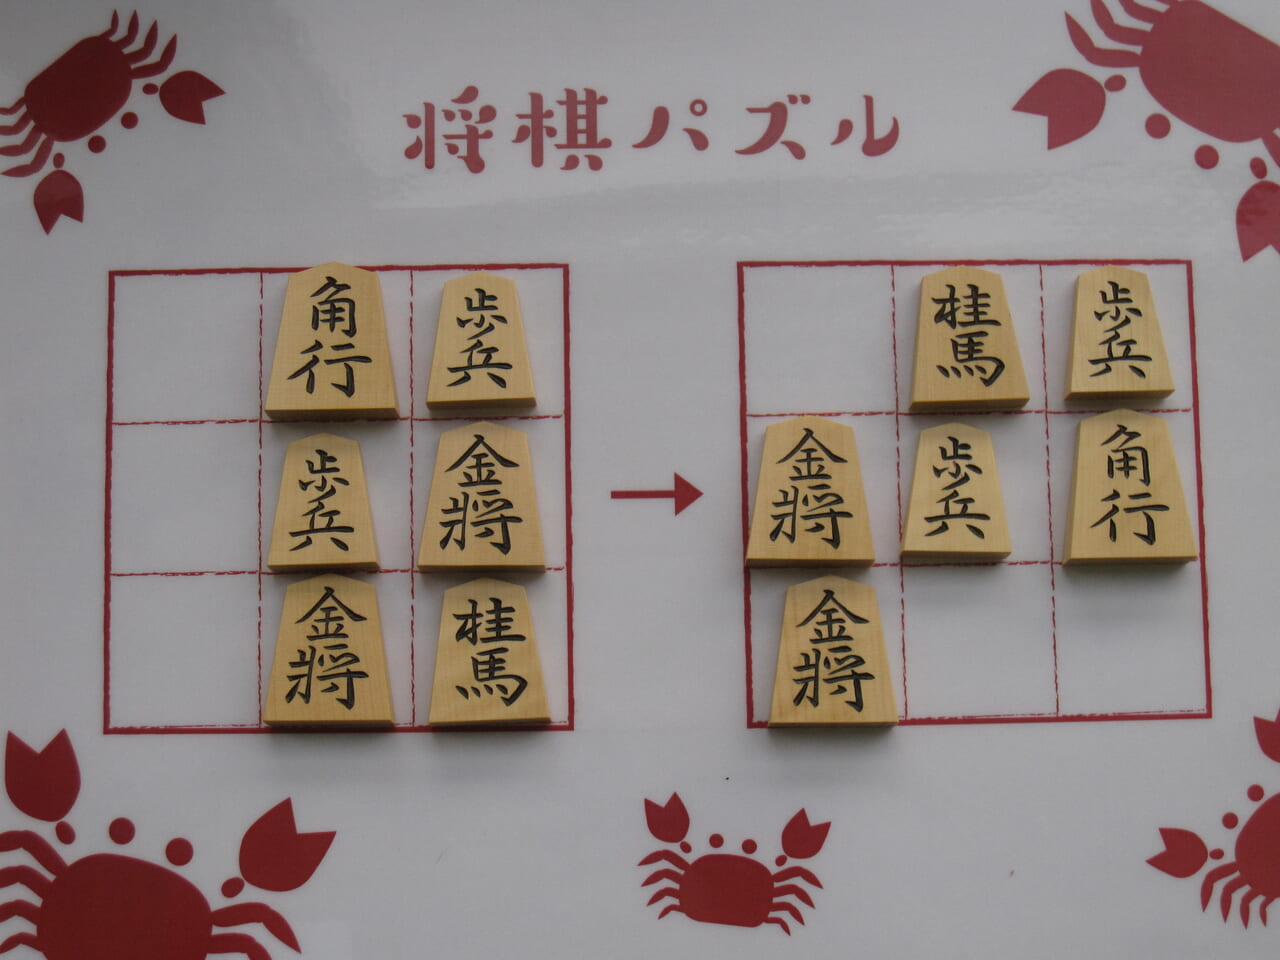 将棋パズル
角行 歩兵 桂馬 歩兵
歩兵 金将 金将 歩兵 角行
金将 桂馬 金将